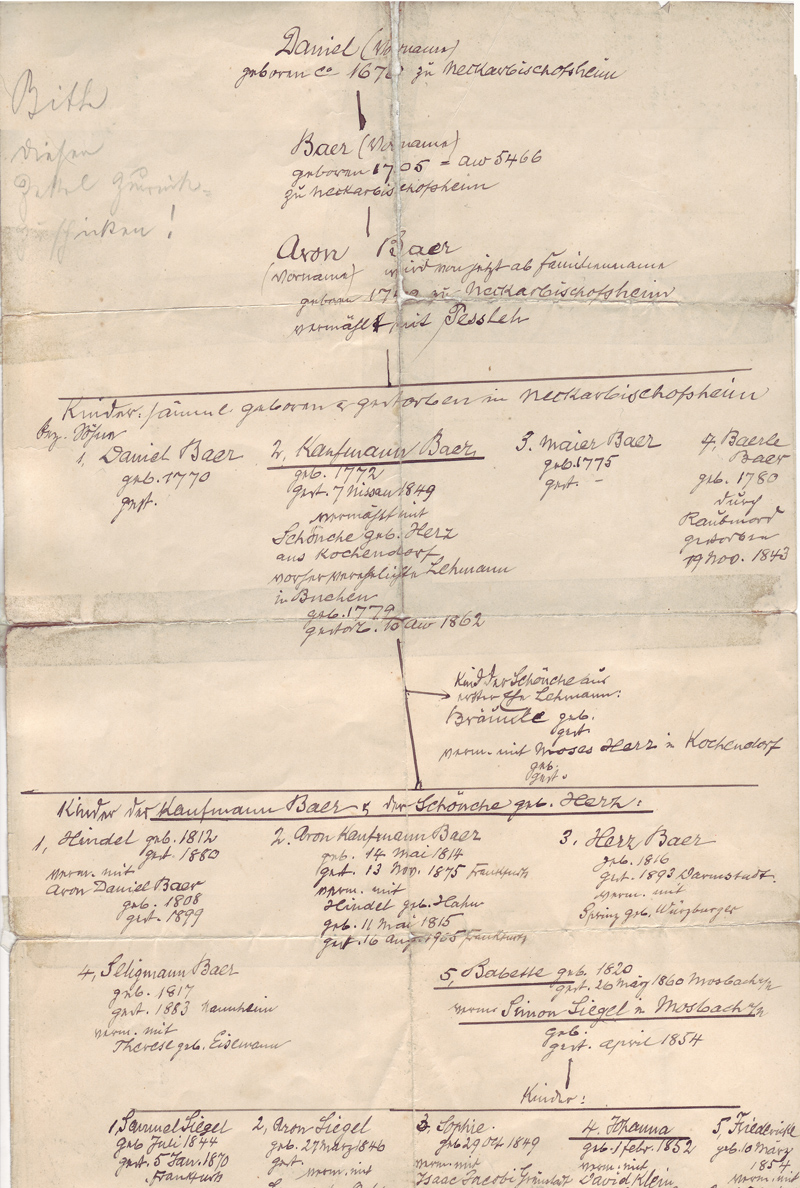 Daniel (Vorname)
geboren ca 167 zu Neckarbischofsheim
Bitte
diesen
Zettel zurück-
schicken!
Baer (Vorname)
geboren 1705 = aw 5466
zu Neckarbischofsheim
Aron Baer
(Vorname) wird von jetzt ab Familienname
geboren 17 zu Neckarbischofsheim
vermählt mit Pessleh
Kinder: sämml geboren & gestorben in Neckarbischofsheim
bez. Söhne
1, Daniel Baer
geb. 1770
gest.
2, Kaufmann Baer,
geb. 1772
gest. 7 Nissan 1849
vermählt mit
Schönche geb. Herz
aus Kochendorf,
vorher verehelichte Lehmann
in Buchen
geb. 1779
gestorb. 10 aw 1862
3. Maier Baer
geb. 1775
gest. -
4, Baerle
Baer
geb. 1780
durch
Raubmord
gestorben
19 Nov. 1843
Kind der Schönche aus
erster Ehe Lehmann:
geb.
gest.
verm. mit Moses Herz in Kochendorf
geb.
gest.
Kinder der Kaufmann Baer & der Schönche geb. Herz:
1, Hindel geb. 1812
gest. 1880
verm. mit
Aron Daniel Baer
geb. 1808
gest. 1899
2. Aron Kaufmann Baer
geb. 14 Mai 1814
gest. 13 Nov. 1875 Frankfurt
verm. mit
Hindel geb. Hahn
geb. 11 Mai 1815
gest. 16 Aug. 1905 Frankfurt
3. Herz Baer
geb. 1816
gest. 1893 Darmstadt.
verm. mit
Sprinz geb. Würzburger
4, Seligmann Baer
geb. 1817
gest. 1883 Mannheim
verm. mit
Therese geb. Eisemann
5, Babette geb. 1820
gest. 26 März 1860 Mosbach a/N
verm. Simon Siegel in Mosbach a/N
geb.
gest. April 1854
Kinder:
1, Samuel Siegel
geb Juli 1844
gest. 5 Jan. 1870
Frankfurt
2, Aron Siegel
geb. 27 März 1846
gest.
verm. mit
3, Sophie.
geb 29 1849
verm. mit
Isaac Jacobi
4. Johanna
geb. 1 febr. 1852
verm. mit
David Klein
5, Friederike
geb. 10 März
1854
verm. mit